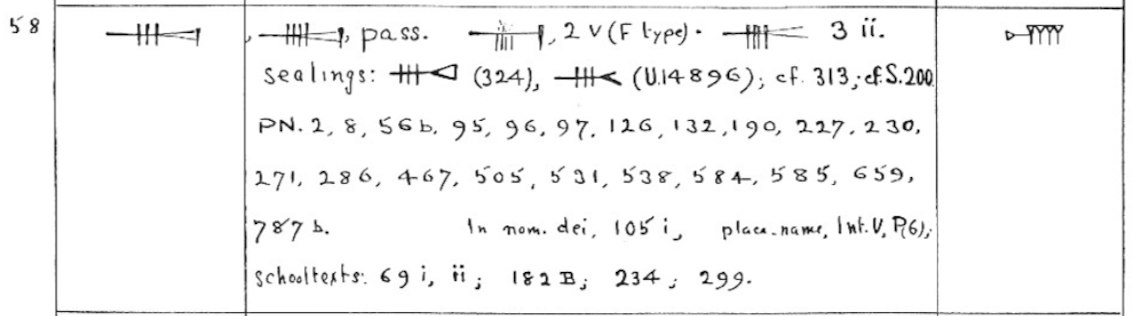 58
, pass. , 2 v (F type). 3 ii.
sealings: (324), (U.14896); cf. 313; cf. S.200
PN. 2, 8, 56 b, 95, 96, 97, 126, 132, 190, 227, 230,
271, 286, 467, 505, 531, 538, 584, 585, 659,
787 b. In nom. dei, 105 i, place-name, Int. V, P(6);
schooltexts: 69 i, ii; 182 B; 234; 299.